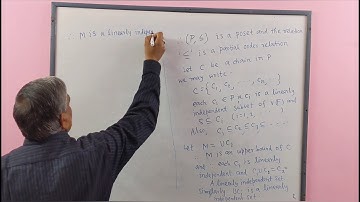 ∴ M is a linearly indepe
∴ (P, ≤) is a poset and the relation
'≤' is a partial order relation
Let C be a chain in P
we may write
C = { C₁, C₂, ..... , Cₙ, .. }
each Cᵢ ∈ P & Cᵢ is a linearly
independent subset of
S ⊆ Cᵢ
Also, C₁ ⊆ C₂ ⊆ C₃ ⊆ .....
Let M = ∪Cᵢ
M is an upper bound of C
and each Cᵢ is linearly
independent and C₁∪C₂ = C₂
A linearly independent set
Similarly ∪Cᵢ is a linearly
independent set